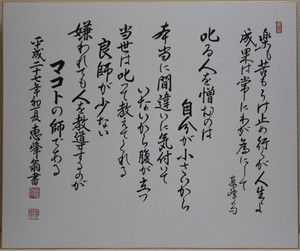 楽も苦もうけ止め行くが人生よ
成果は常にわが為にして
恵峰の句
叱る人を憎むのは
自分が小さいから
本当に間違いに気付いて
いないから腹が立つ
当世は叱って教えてくれる
良師が少ない
嫌われても人を教導するのが
マコトの師である
平成二十七年初夏 恵峰翁書